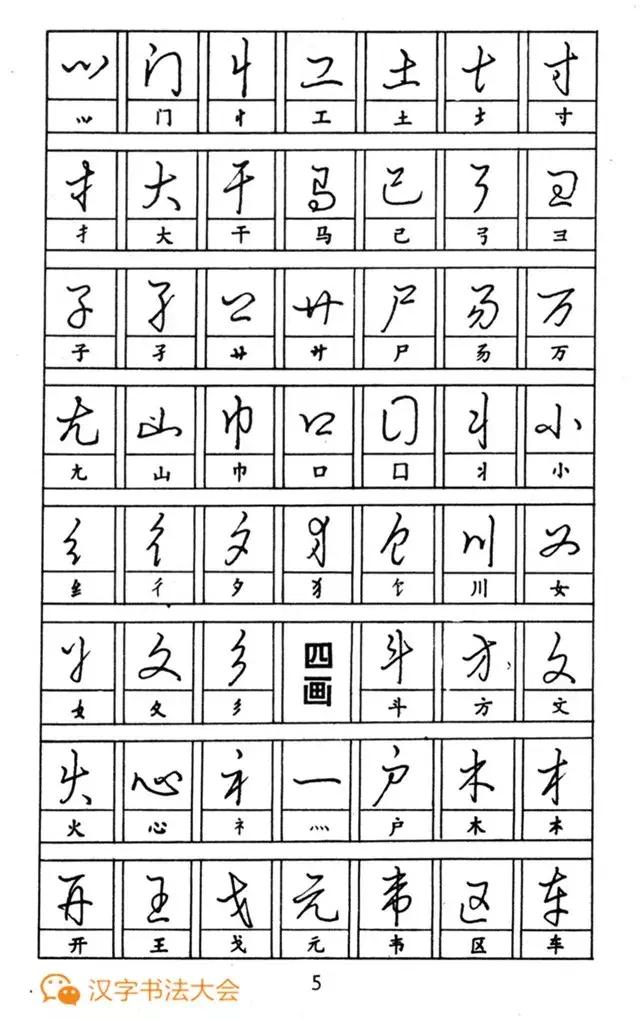 ⺍ 门 忄 工 土 土 寸
⺍ 门 忄 工 土 土 寸
扌 大 干 马 已 弓 彐
扌 大 干 马 已 弓 彐
子 孑 廾 艹 尸 𠃓 万
子 孑 廾 艹 尸 𠃓 万
尢 山 巾 口 囗 丬 小
尢 山 巾 口 囗 丬 小
纟 彳 夕 犭 饣 川 女
纟 彳 夕 犭 饣 川 女
女 夂 彡 四画 斗 方 文
女 夂 彡 斗 方 文
火 心 礻 灬 户 木 木
火 心 礻 灬 户 木 木
开 王 戈 元 韦 区 车
开 王 戈 元 韦 区 车
汉字书法大会 5